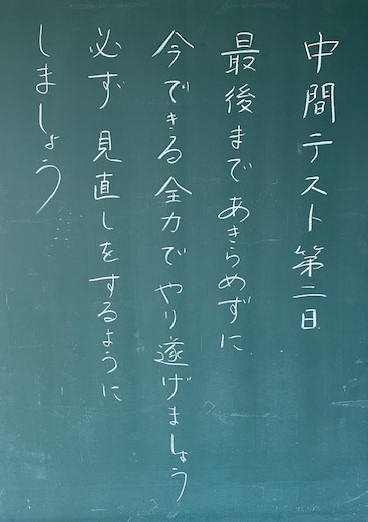 中間テスト第二日
最後まであきらめずに
今できる全力でやり遂げましょう
必ず見直しをするように
しましょう